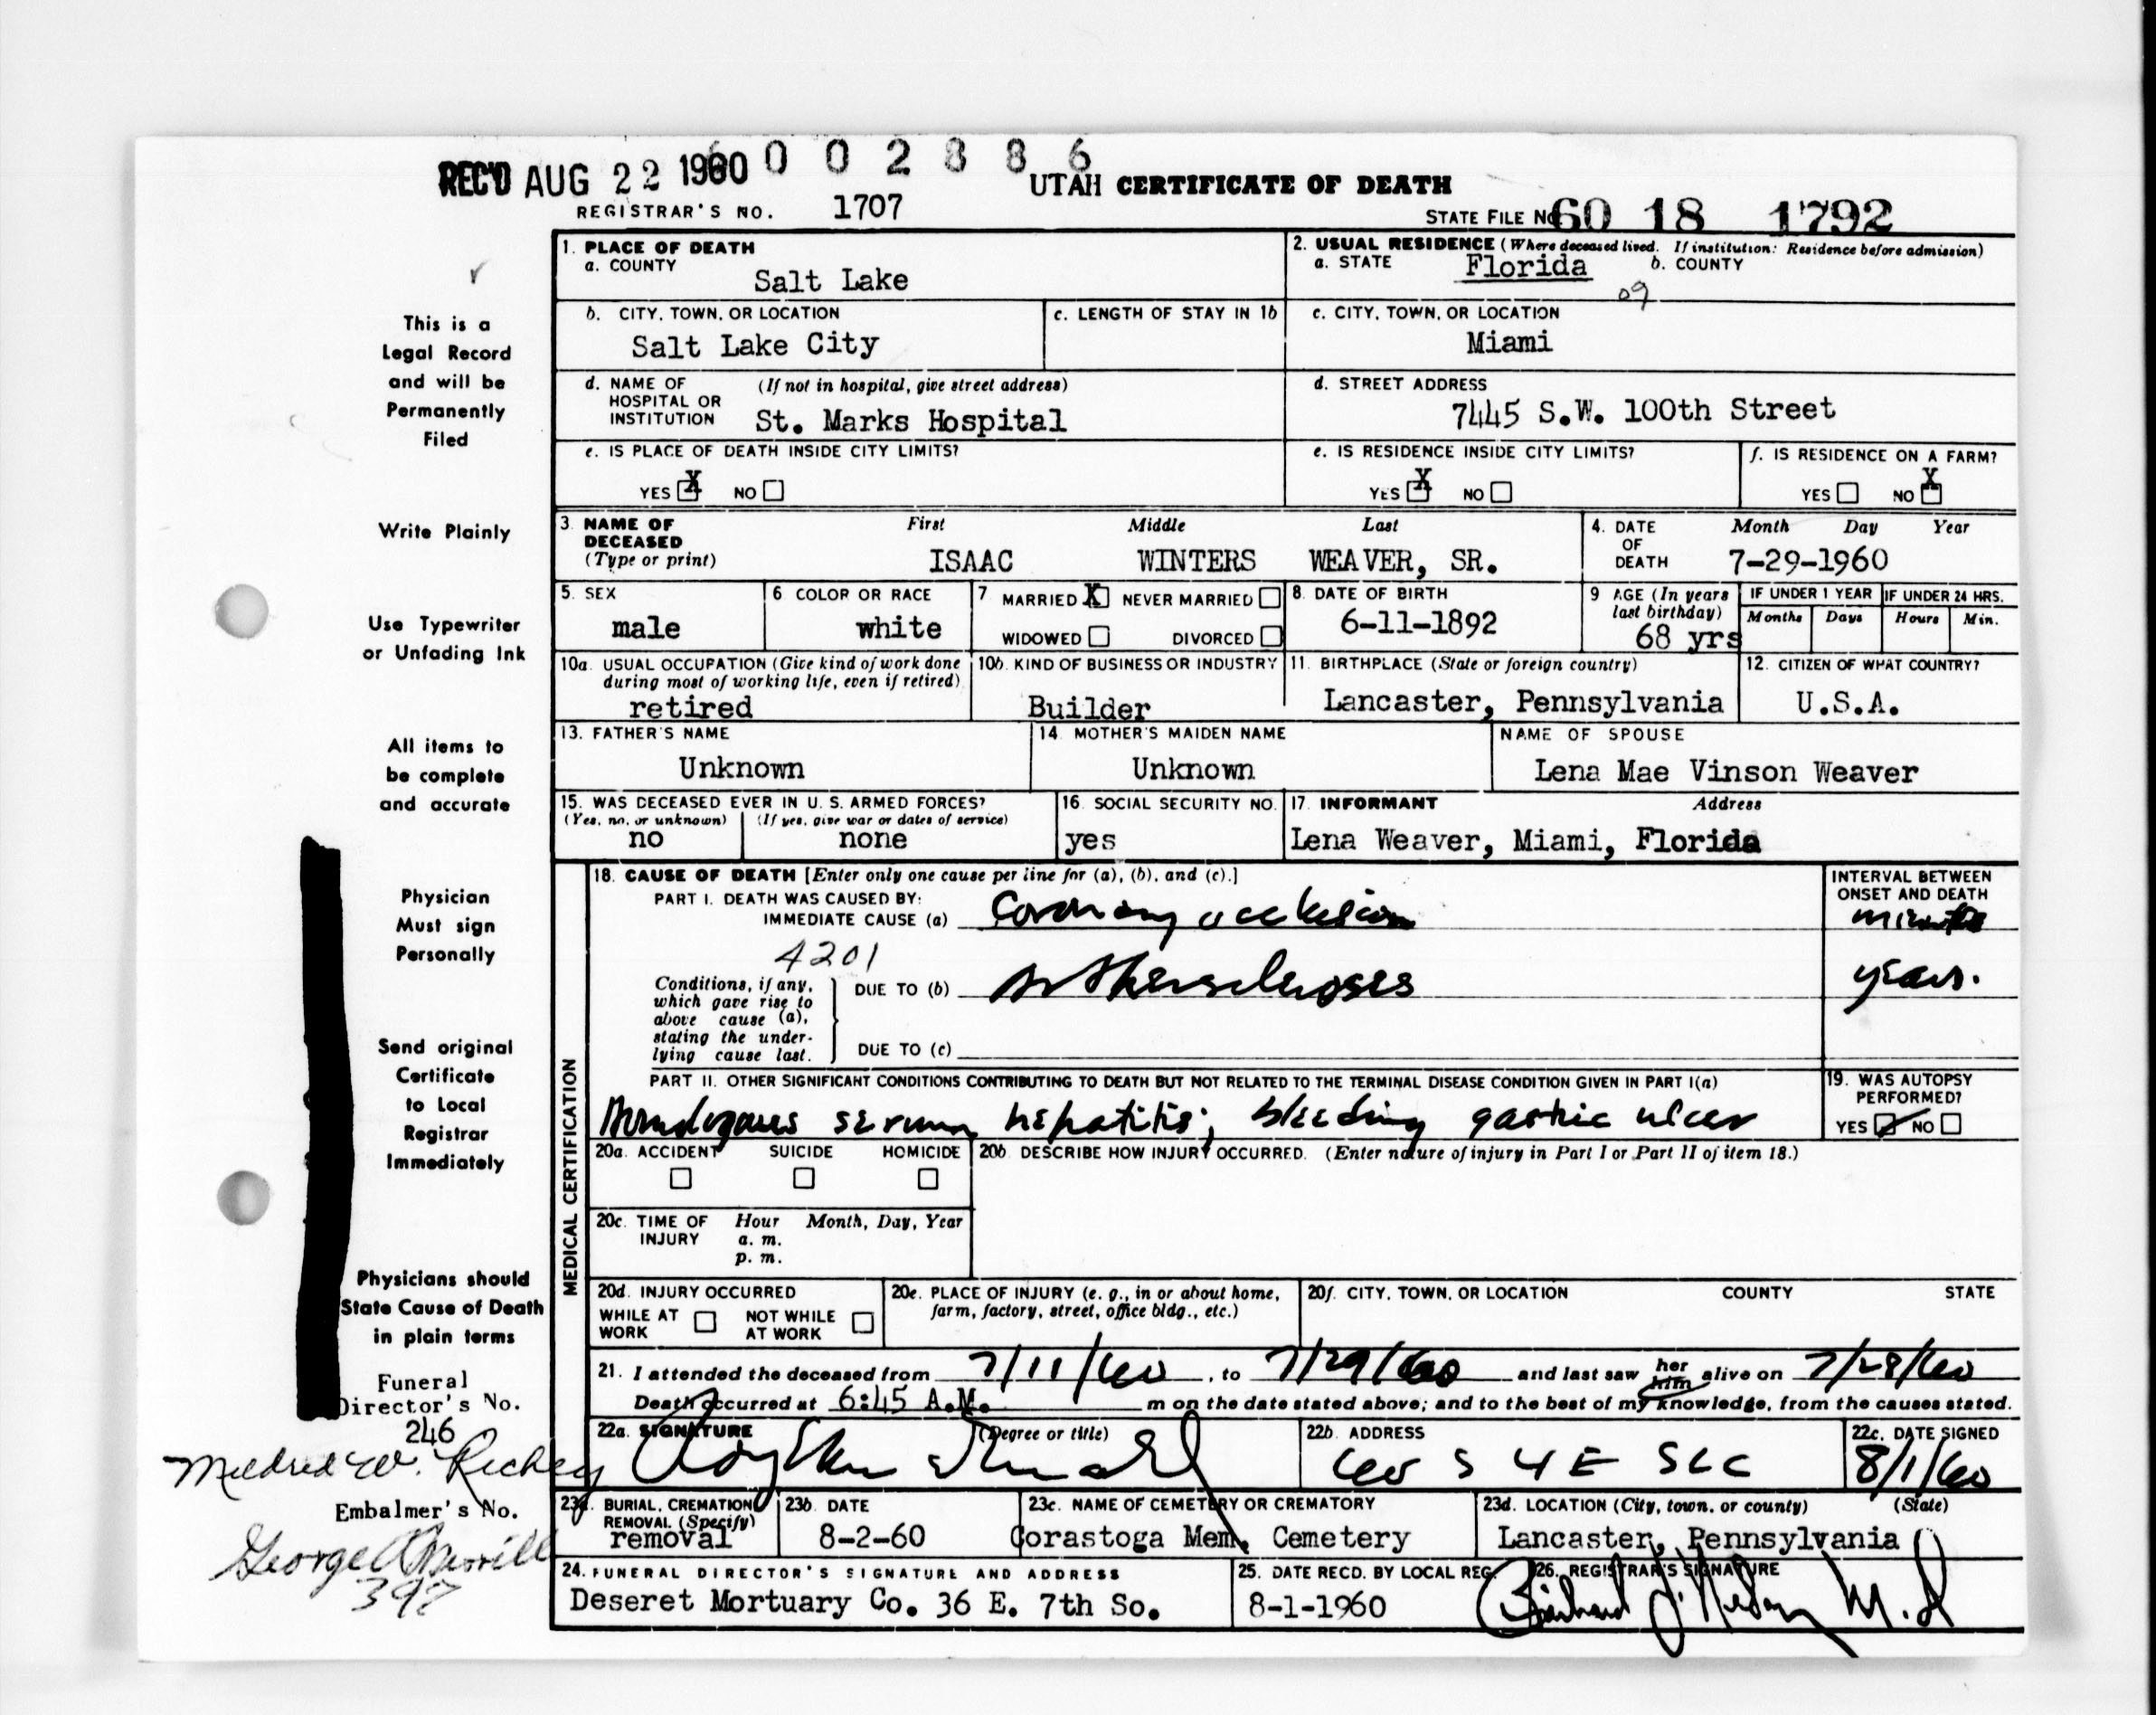 REC'D AUG 22 1960 0 0 2 8 8 6
UTAH CERTIFICATE OF DEATH
REGISTRAR'S NO. 1707
STATE FILE NO. 60 18 1792
1. PLACE OF DEATH
a. COUNTY
Salt Lake
2. USUAL RESIDENCE (Where deceased lived. If institution: Residence before admission)
a. STATE Florida b. COUNTY
09
b. CITY, TOWN, OR LOCATION
Salt Lake City
c. LENGTH OF STAY IN 1b
c. CITY, TOWN, OR LOCATION
Miami
d. NAME OF HOSPITAL OR INSTITUTION (If not in hospital, give street address)
St. Marks Hospital
d. STREET ADDRESS
7445 S.W. 100th Street
e. IS PLACE OF DEATH INSIDE CITY LIMITS?
YES X NO
e. IS RESIDENCE INSIDE CITY LIMITS?
YES X NO
f. IS RESIDENCE ON A FARM?
YES NO X
3. NAME OF DECEASED (Type or print)
First Middle Last
ISAAC WINTERS WEAVER, SR.
4. DATE OF DEATH Month Day Year
7-29-1960
5. SEX
male
6. COLOR OR RACE
white
7. MARRIED X NEVER MARRIED
WIDOWED DIVORCED
8. DATE OF BIRTH
6-11-1892
9. AGE (In years last birthday)
68 yrs
IF UNDER 1 YEAR IF UNDER 24 HRS.
Months Days Hours Min.
10a. USUAL OCCUPATION (Give kind of work done during most of working life, even if retired)
retired
10b. KIND OF BUSINESS OR INDUSTRY
Builder
11. BIRTHPLACE (State or foreign country)
Lancaster, Pennsylvania
12. CITIZEN OF WHAT COUNTRY?
U.S.A.
13. FATHER'S NAME
Unknown
14. MOTHER'S MAIDEN NAME
Unknown
NAME OF SPOUSE
Lena Mae Vinson Weaver
15. WAS DECEASED EVER IN U. S. ARMED FORCES?
(Yes, no, or unknown) (If yes, give war or dates of service)
no none
16. SOCIAL SECURITY NO.
yes
17. INFORMANT Address
Lena Weaver, Miami, Florida
18. CAUSE OF DEATH [Enter only one cause per line for (a), (b), and (c).]
PART I. DEATH WAS CAUSED BY:
IMMEDIATE CAUSE (a) Coronary occlusion
INTERVAL BETWEEN ONSET AND DEATH
minutes
4201
Conditions, if any, which gave rise to above cause (a), stating the underlying cause last.
DUE TO (b) Artherosclerosis
years.
DUE TO (c)
PART II. OTHER SIGNIFICANT CONDITIONS CONTRIBUTING TO DEATH BUT NOT RELATED TO THE TERMINAL DISEASE CONDITION GIVEN IN PART I(a)
Homologous serum hepatitis; bleeding gastric ulcer
19. WAS AUTOPSY PERFORMED?
YES NO
20a. ACCIDENT SUICIDE HOMICIDE
20b. DESCRIBE HOW INJURY OCCURRED. (Enter nature of injury in Part I or Part II of item 18.)
20c. TIME OF INJURY Hour Month, Day, Year
a. m.
p. m.
20d. INJURY OCCURRED
WHILE AT WORK NOT WHILE AT WORK
20e. PLACE OF INJURY (e. g., in or about home, farm, factory, street, office bldg., etc.)
20f. CITY, TOWN, OR LOCATION COUNTY STATE
21. I attended the deceased from 7/11/60, to 7/29/60 and last saw her him alive on 7/28/60
Death occurred at 6:45 A.M. m on the date stated above; and to the best of my knowledge, from the causes stated.
22a. SIGNATURE (Degree or title)
22b. ADDRESS
S 4 E SLC
22c. DATE SIGNED
8/1/60
23a. BURIAL, CREMATION, REMOVAL (Specify)
removal
23b. DATE
8-2-60
23c. NAME OF CEMETERY OR CREMATORY
Corastoga Mem. Cemetery
23d. LOCATION (City, town, or county) (State)
Lancaster, Pennsylvania
24. FUNERAL DIRECTOR'S SIGNATURE AND ADDRESS
Deseret Mortuary Co. 36 E. 7th So.
25. DATE RECD. BY LOCAL REG.
8-1-1960
26. REGISTRAR'S SIGNATURE
M.D
MEDICAL CERTIFICATION
This is a
Legal Record
and will be
Permanently
Filed
Write Plainly
Use Typewriter
or Unfading Ink
All items to
be complete
and accurate
Physician
Must sign
Personally
Send original
Certificate
to Local
Registrar
Immediately
Physicians should
State Cause of Death
in plain terms
Funeral
Director's No.
246
Mildred W. Richey
Embalmer's No.
George A Merrill
397